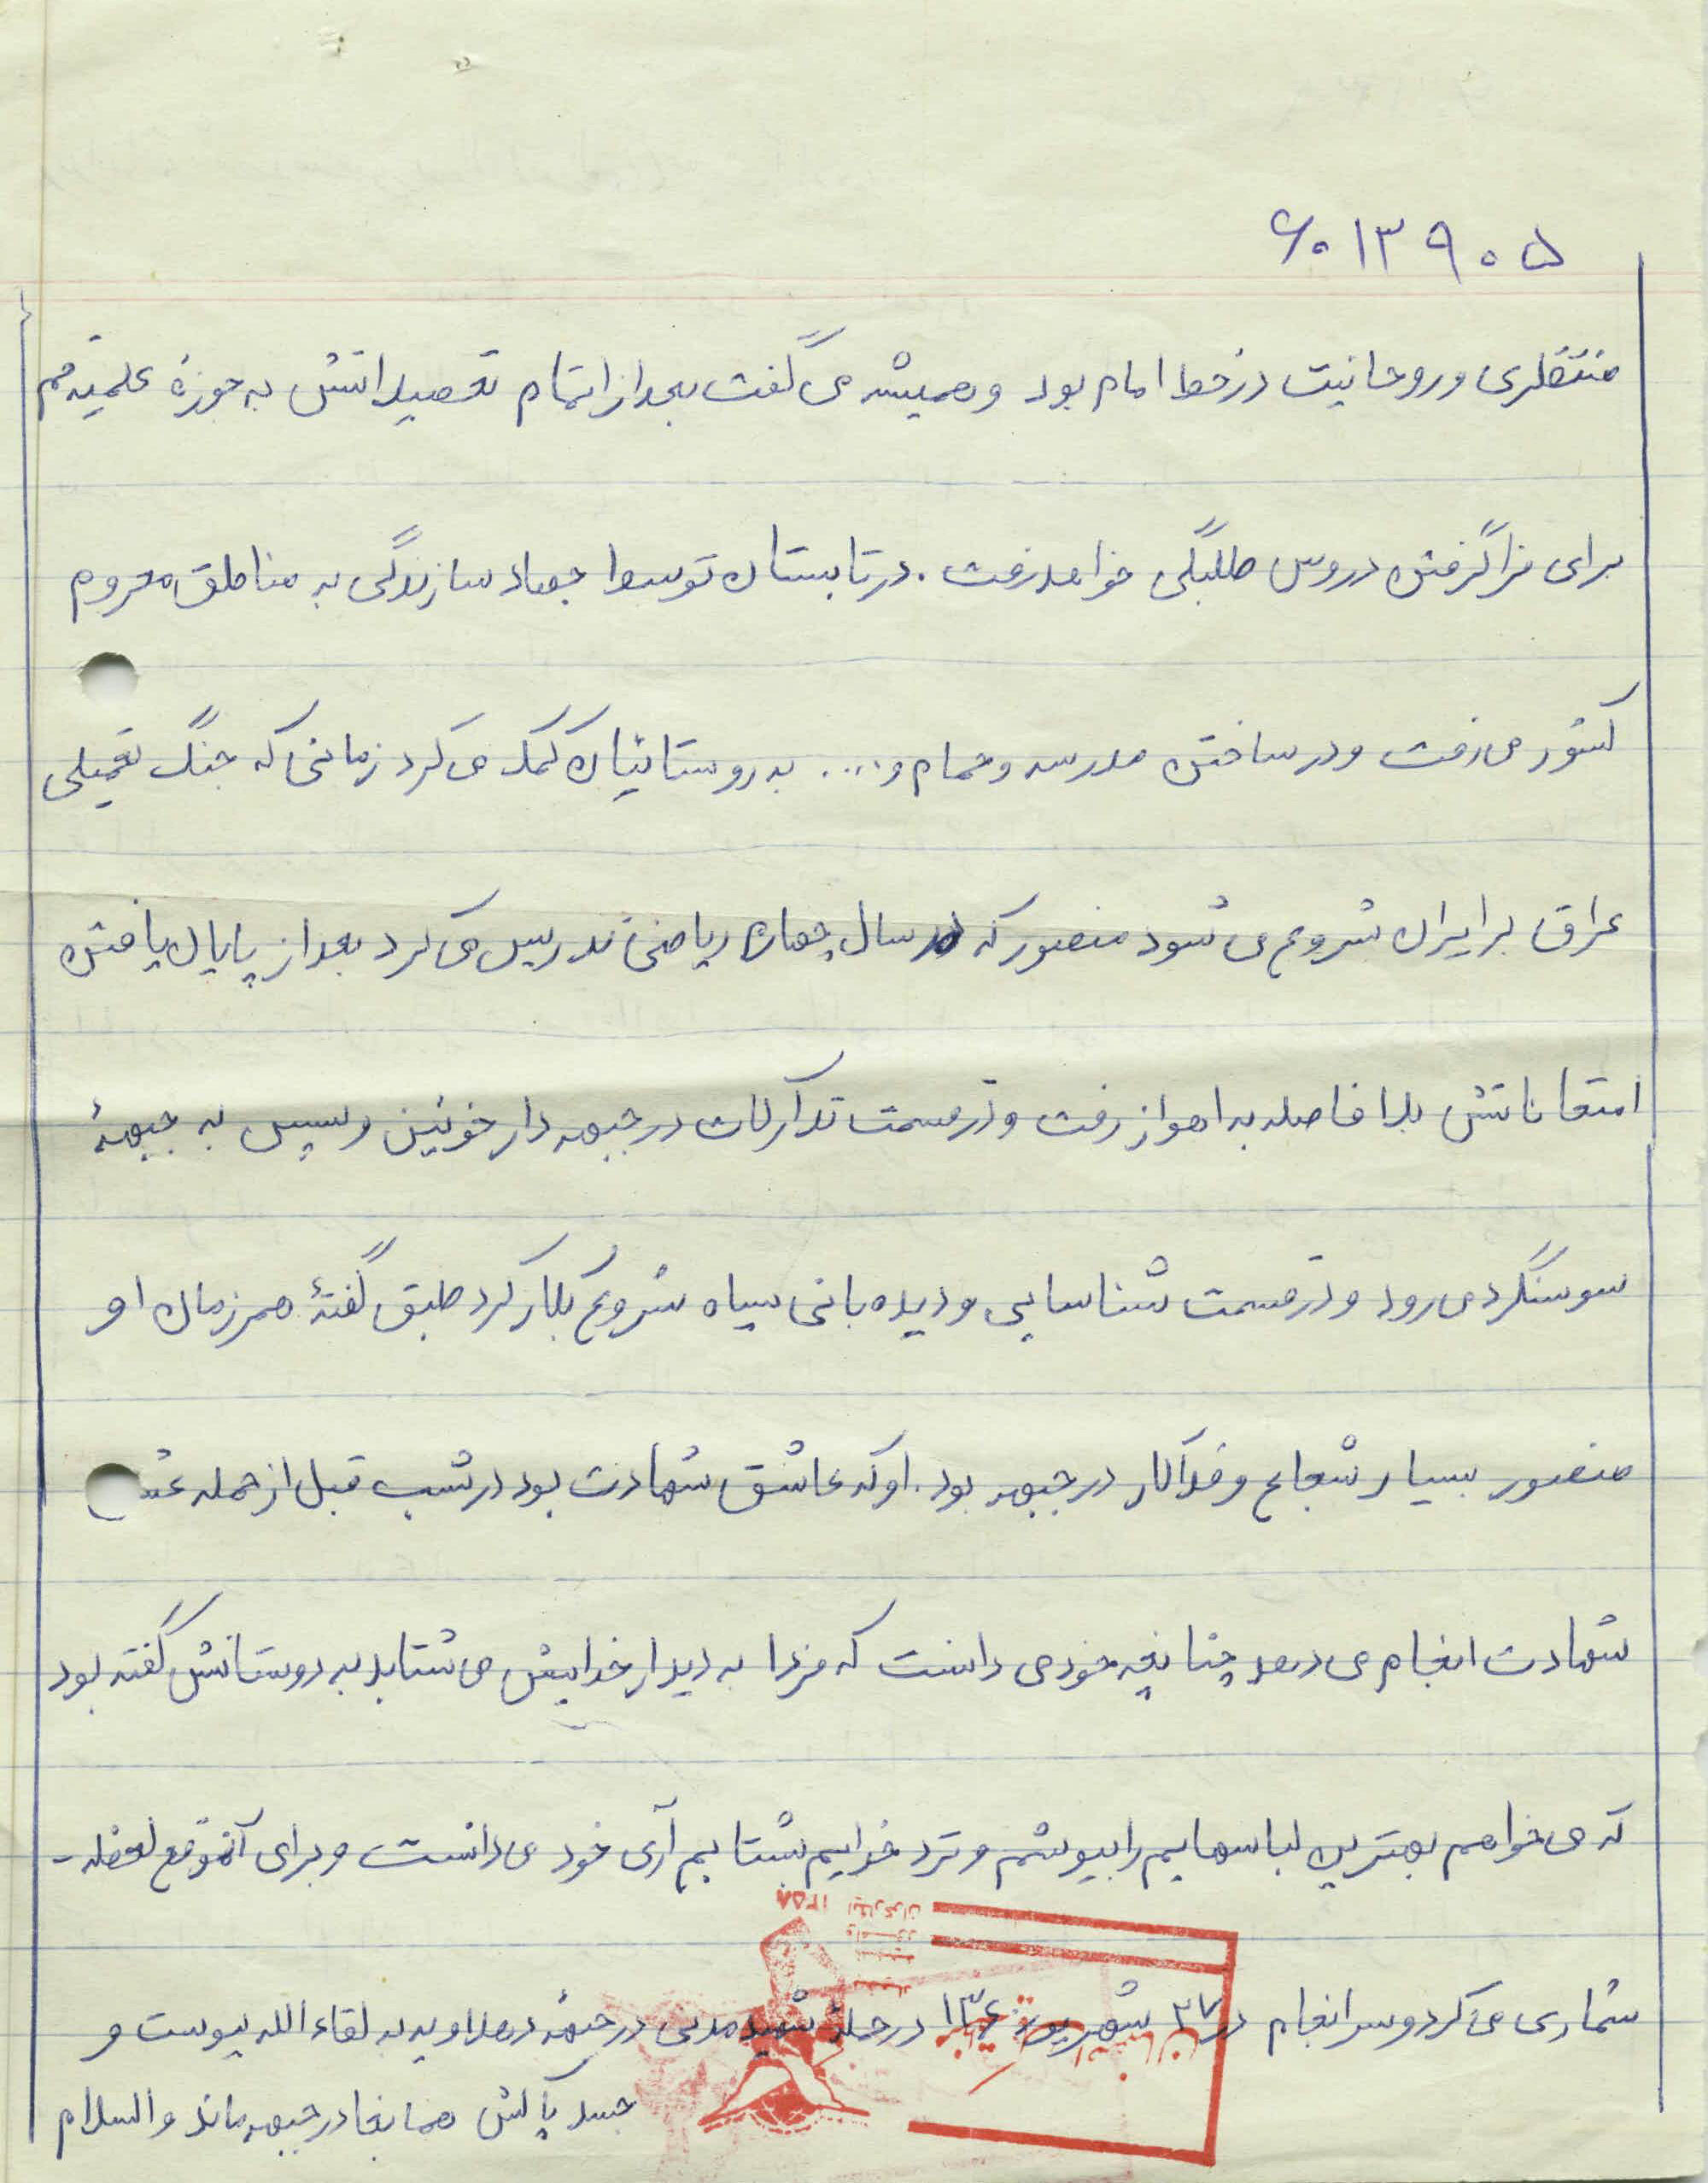 ۶۰۱۳۹۰۵
منتظری و روحانیت در خط امام بود و همیشه می گفت بعد از اتمام تحصیلاتش به حوزهٔ علمیّه قم
برای فرا گرفتن دروس طلبگی خواهد رفت . در تابستان توسط جهاد سازندگی به مناطق محروم
کشور می رفت و در ساختن مدرسه و حمام و .... به روستائیان کمک می کرد زمانی که جنگ تحمیلی
عراق بر ایران شروع می شود منصور که در سال چهارم ریاضی تدریس می کرد بعد از پایان یافتن
امتحاناتش بلافاصله به اهواز رفت و در قسمت تدارکات در جبهه دارخوئین و سپس به جبههٔ
سوسنگرد می رود و در قسمت شناسایی و دیده بانی سپاه شروع بکار کرد طبق گفتهٔ همرزمان او
منصور بسیار شجاع و فداکار در جبهه بود . او که عاشق شهادت بود در شب قبل از حمله غسل
شهادت انجام می دهد چنانچه خود می دانست که فردا به دیدار خدایش می شتابد به دوستانش گفته بود
که می خواهم بهترین لباسهایم را بپوشم و نزد خدایم بشتابم آری خود می دانست و برای آنموقع لحظه -
شماری می کرد و سرانجام در ۲۷ شهریور ۱۳۶۰ در حملهٔ شهید مدنی در جبههٔ دهلاویه به لقاء الله پیوست و
جسد پاکش همانجا در جبهه ماند والسلام
۱۳۵۸